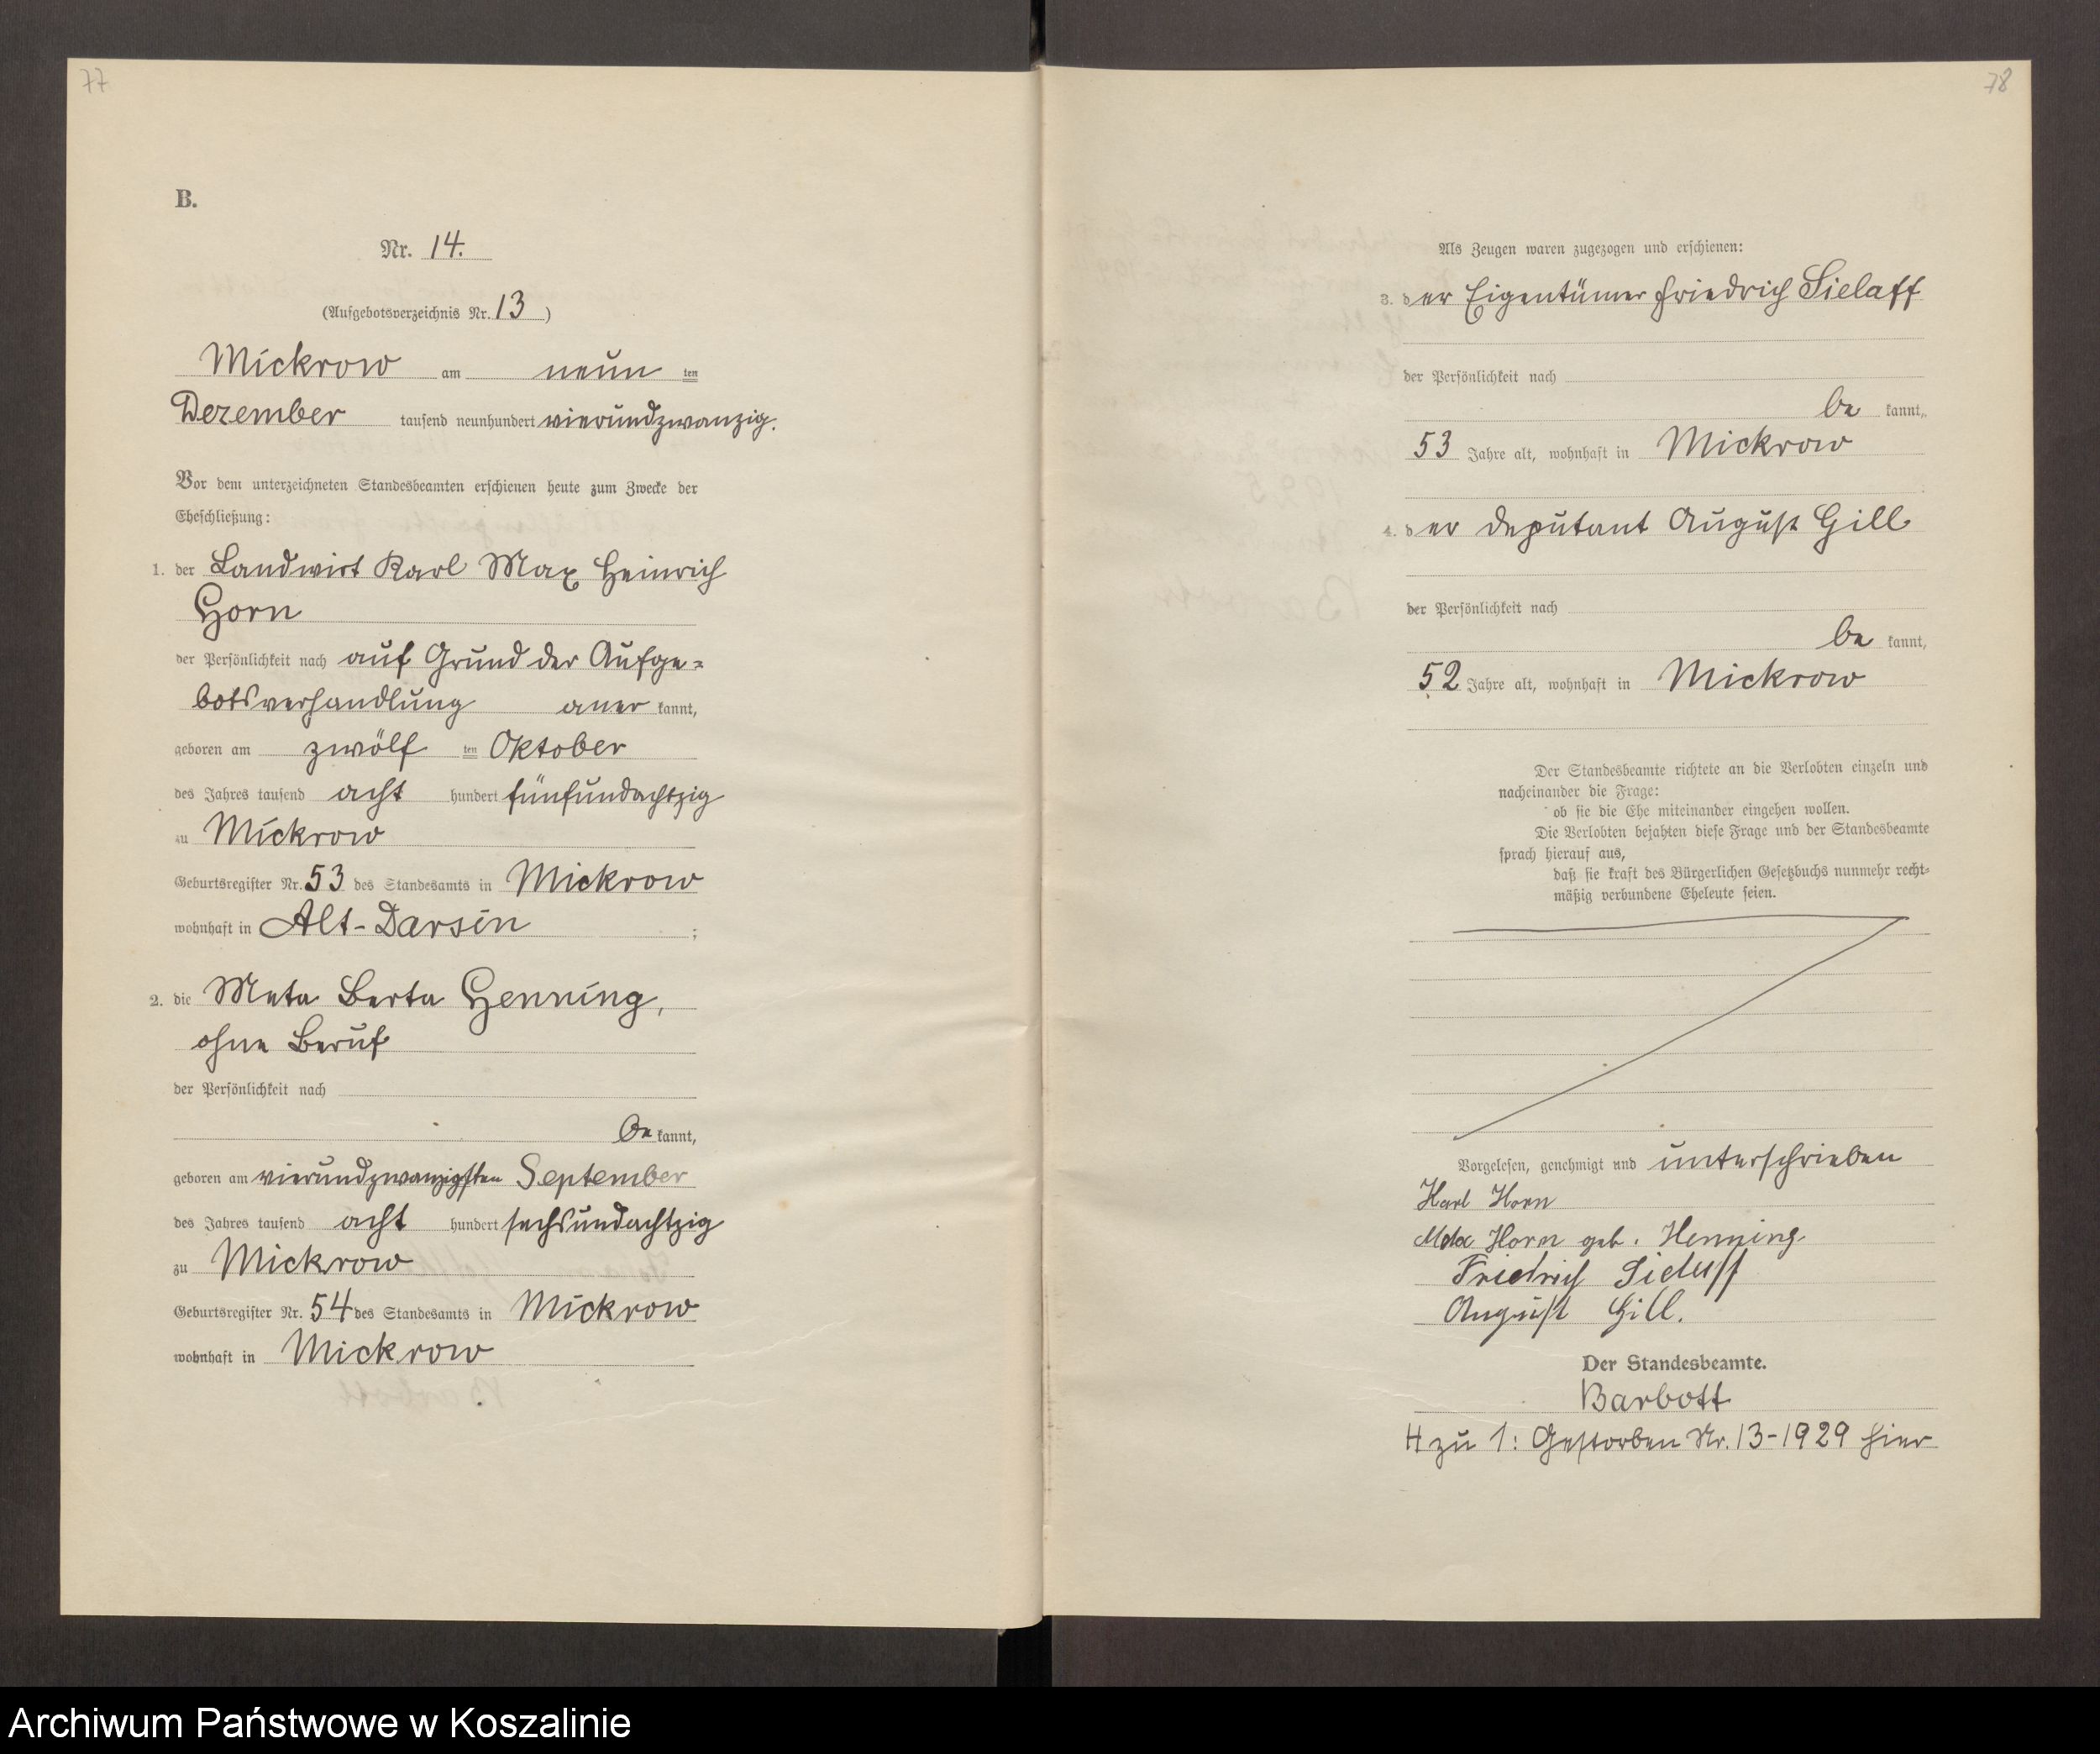 77
B.
Nr. 14.
(Aufgebotsverzeichnis Nr. 13)
Mickrow am neun ten
Dezember tausend neunhundert vierundzwanzig.
Vor dem unterzeichneten Standesbeamten erschienen heute zum Zwecke der
Eheschließung:
1. der Landwirt Karl Max Heinrich
Horn
der Persönlichkeit nach auf Grund der Aufge=
botsverhandlung aner kannt,
geboren am zwölf ten Oktober
des Jahres tausend acht hundert fünfundachtzig
zu Mickrow
Geburtsregister Nr. 53 des Standesamts in Mickrow
wohnhaft in Alt-Darsin ;
2. die Meta Berta Henning,
ohne Beruf
der Persönlichkeit nach
be kannt,
geboren am vierundzwanzigsten September
des Jahres tausend acht hundert sechsundachtzig
zu Mickrow
Geburtsregister Nr. 54 des Standesamts in Mickrow
wohnhaft in Mickrow
78
Als Zeugen waren zugezogen und erschienen:
3. der Eigentümer Friedrich Sielaff
der Persönlichkeit nach
be kannt,
53 Jahre alt, wohnhaft in Mickrow
4. der Deputant August Gill
der Persönlichkeit nach
be kannt,
52 Jahre alt, wohnhaft in Mickrow
Der Standesbeamte richtete an die Verlobten einzeln und
nacheinander die Frage:
ob sie die Ehe miteinander eingehen wollen.
Die Verlobten bejahten diese Frage und der Standesbeamte
sprach hierauf aus,
daß sie kraft des Bürgerlichen Gesetzbuchs nunmehr recht=
mäßig verbundene Eheleute seien.
Vorgelesen, genehmigt und unterschrieben
Karl Horn
Meta Horn geb. Henning
Friedrich Sielaff
August Gill.
Der Standesbeamte.
Barbott
H zu 1: Gestorben Nr. 13-1929 hier
Archiwum Państwowe w Koszalinie